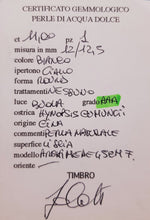 CERTIFICATO GEMMOLOGICO
PERLE DI ACQUA DOLCE
ct 11,00 pz 1
misura in mm 12/12,5
colore BIANCO
ipertono GIALLO
forma
trattamenti NESSUNO
luce BUONA grado AAA
ostrica HYRIOPSIS CUMINGI
origine CINA
commenti PERLA NATURALE
superficie LISCIA
modello
oriente
TIMBRO